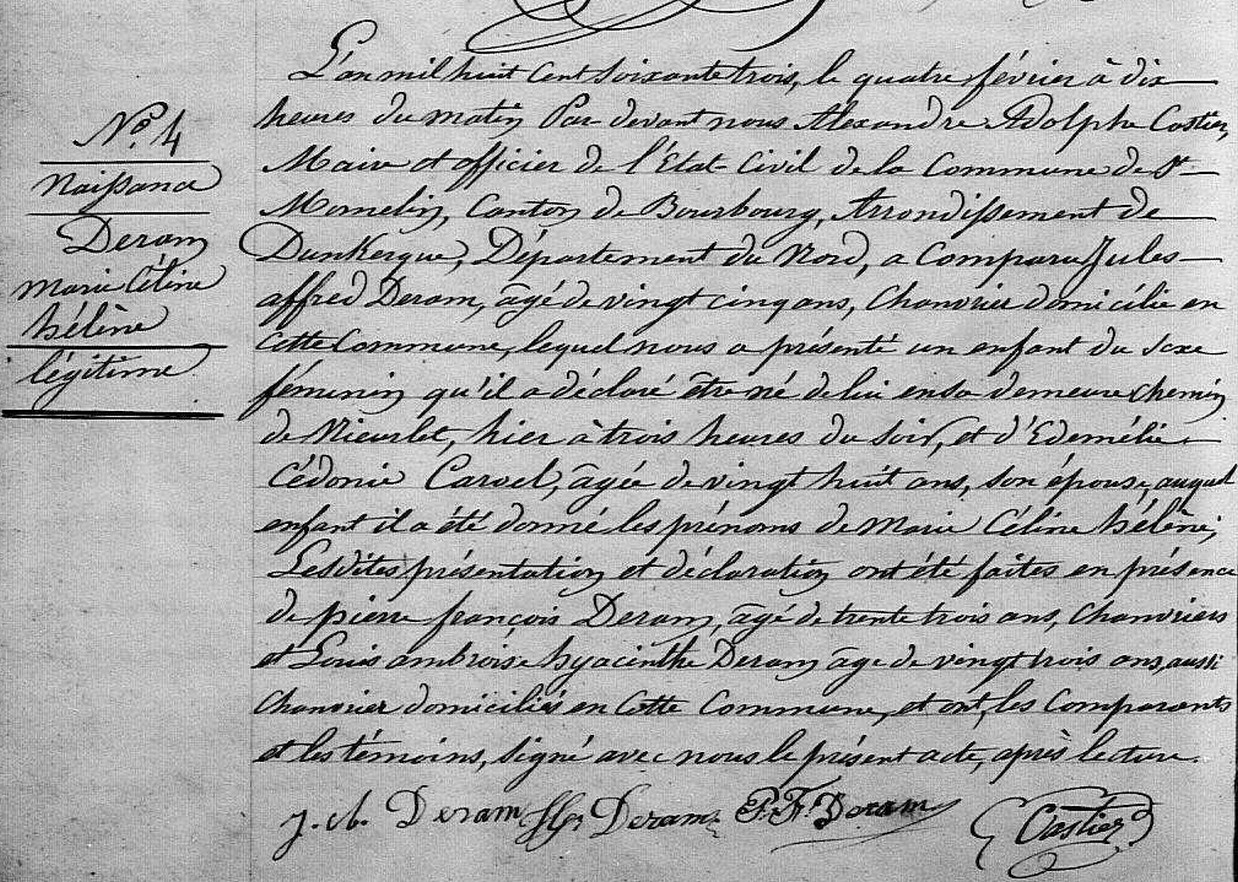 No. 4
Naissance
Deram
Marie Céline
hélène
légitime
L'an mil huit Cent Soixante trois, le quatre février à dix
heures du matin Par-devant nous Alexandre Adolphe Castier,
Maire et officier de l'Etat-Civil de la Commune de St-
Momelin, Canton de Bourbourg, Arrondissement de
Dunkerque, Département du Nord, a Comparu Jules
affred Deram, âgé de vingt cinq ans, Chanvrier domicilié en
cette Commune, lequel nous a présenté un enfant du Sexe
féminin qu'il a déclaré être né de lui en sa demeure chemin
de Nieurlet, hier à trois heures du Soir, et d'Edemélie
Cédonie Carvel, âgée de vingt huit ans, son épouse, auquel
enfant il a été donné les prénoms de Marie Céline hélène;
Lesdites présentation et déclaration ont été faites en présence
de pierre françois Deram, âgé de trente trois ans, Chanvriers
et Louis ambroise hyacinthe Deram âgé de vingt trois ans, aussi
Chanvrier domiciliés en Cette Commune, et ont, les Comparants
et les témoins, signé avec nous le présent acte, après lecture.
J. A. Deram Deram P. F. Deram Castier